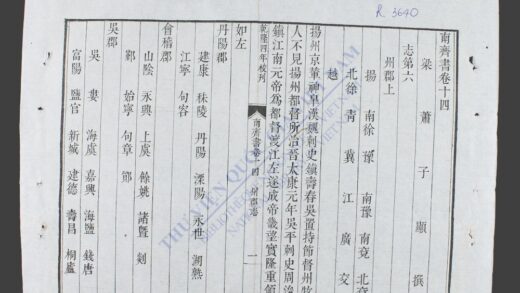 R. 3640
南齊書卷十四
梁蕭子顯撰
志第六
州郡上
揚 南徐 豫 南豫 南兗 北兗
北徐 青 冀 江 廣 交
越
揚州京輦神皐漢魏刺史鎮壽春吳置持節督州牧
人不見揚州都督所治晉太康元年吳平刺史周浚
鎮江南元帝爲都督渡江左遂成帝畿望實隆重領
乾隆四年校刊
南齊書卷十四 州郡志
一
如左
丹陽郡
建康 秣陵 丹陽 溧陽 永世 湖熟
江寧 句容
會稽郡
山陰 永興 上虞 餘姚 諸暨 剡
鄞 始寧 句章 鄮
吳郡
吳 婁 海虞 嘉興 海鹽 錢唐
富陽 鹽官 新城 建德 壽昌 桐廬